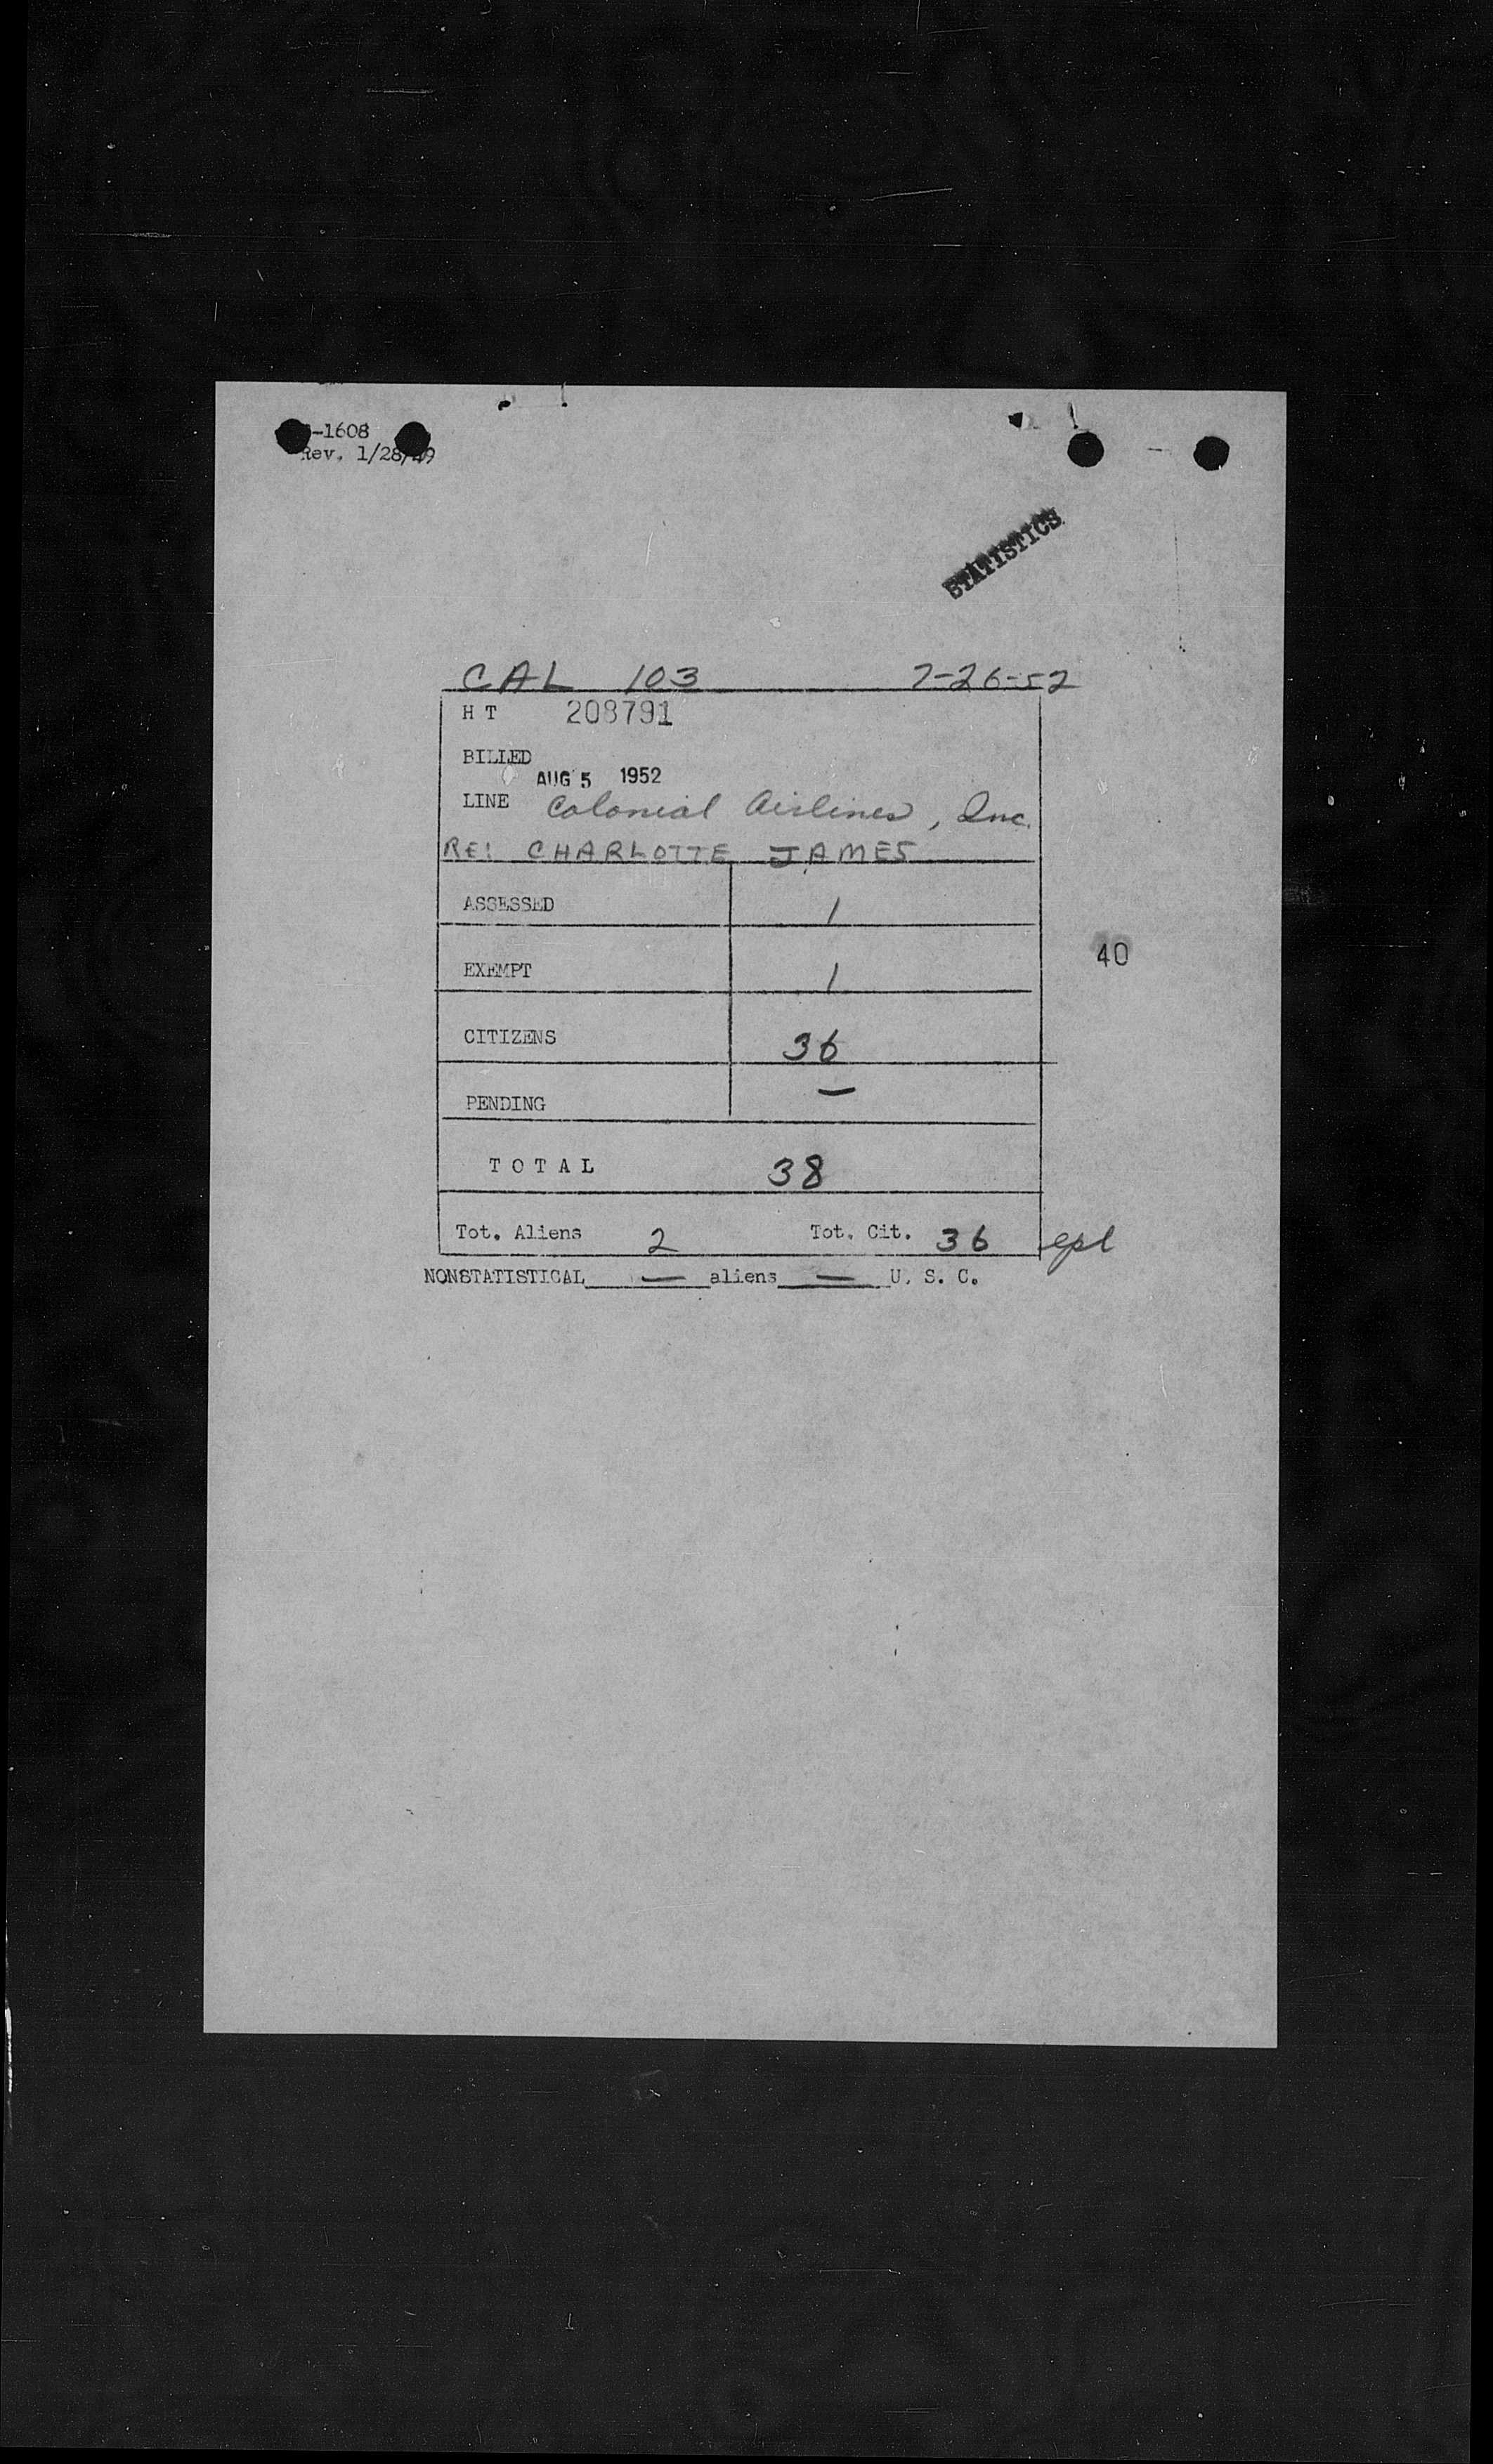 -1608
Rev. 1/28/49
STATISTICS
CAL 103 7-26-52
H T 208791
BILLED
AUG 5 1952
LINE Colonial Airlines, Inc.
RE: CHARLOTTE JAMES
ASSESSED 1
EXEMPT 1
40
CITIZENS 36
PENDING —
T O T A L 38
Tot. Aliens 2 Tot. Cit. 36
NONSTATISTICAL — aliens — U. S. C.